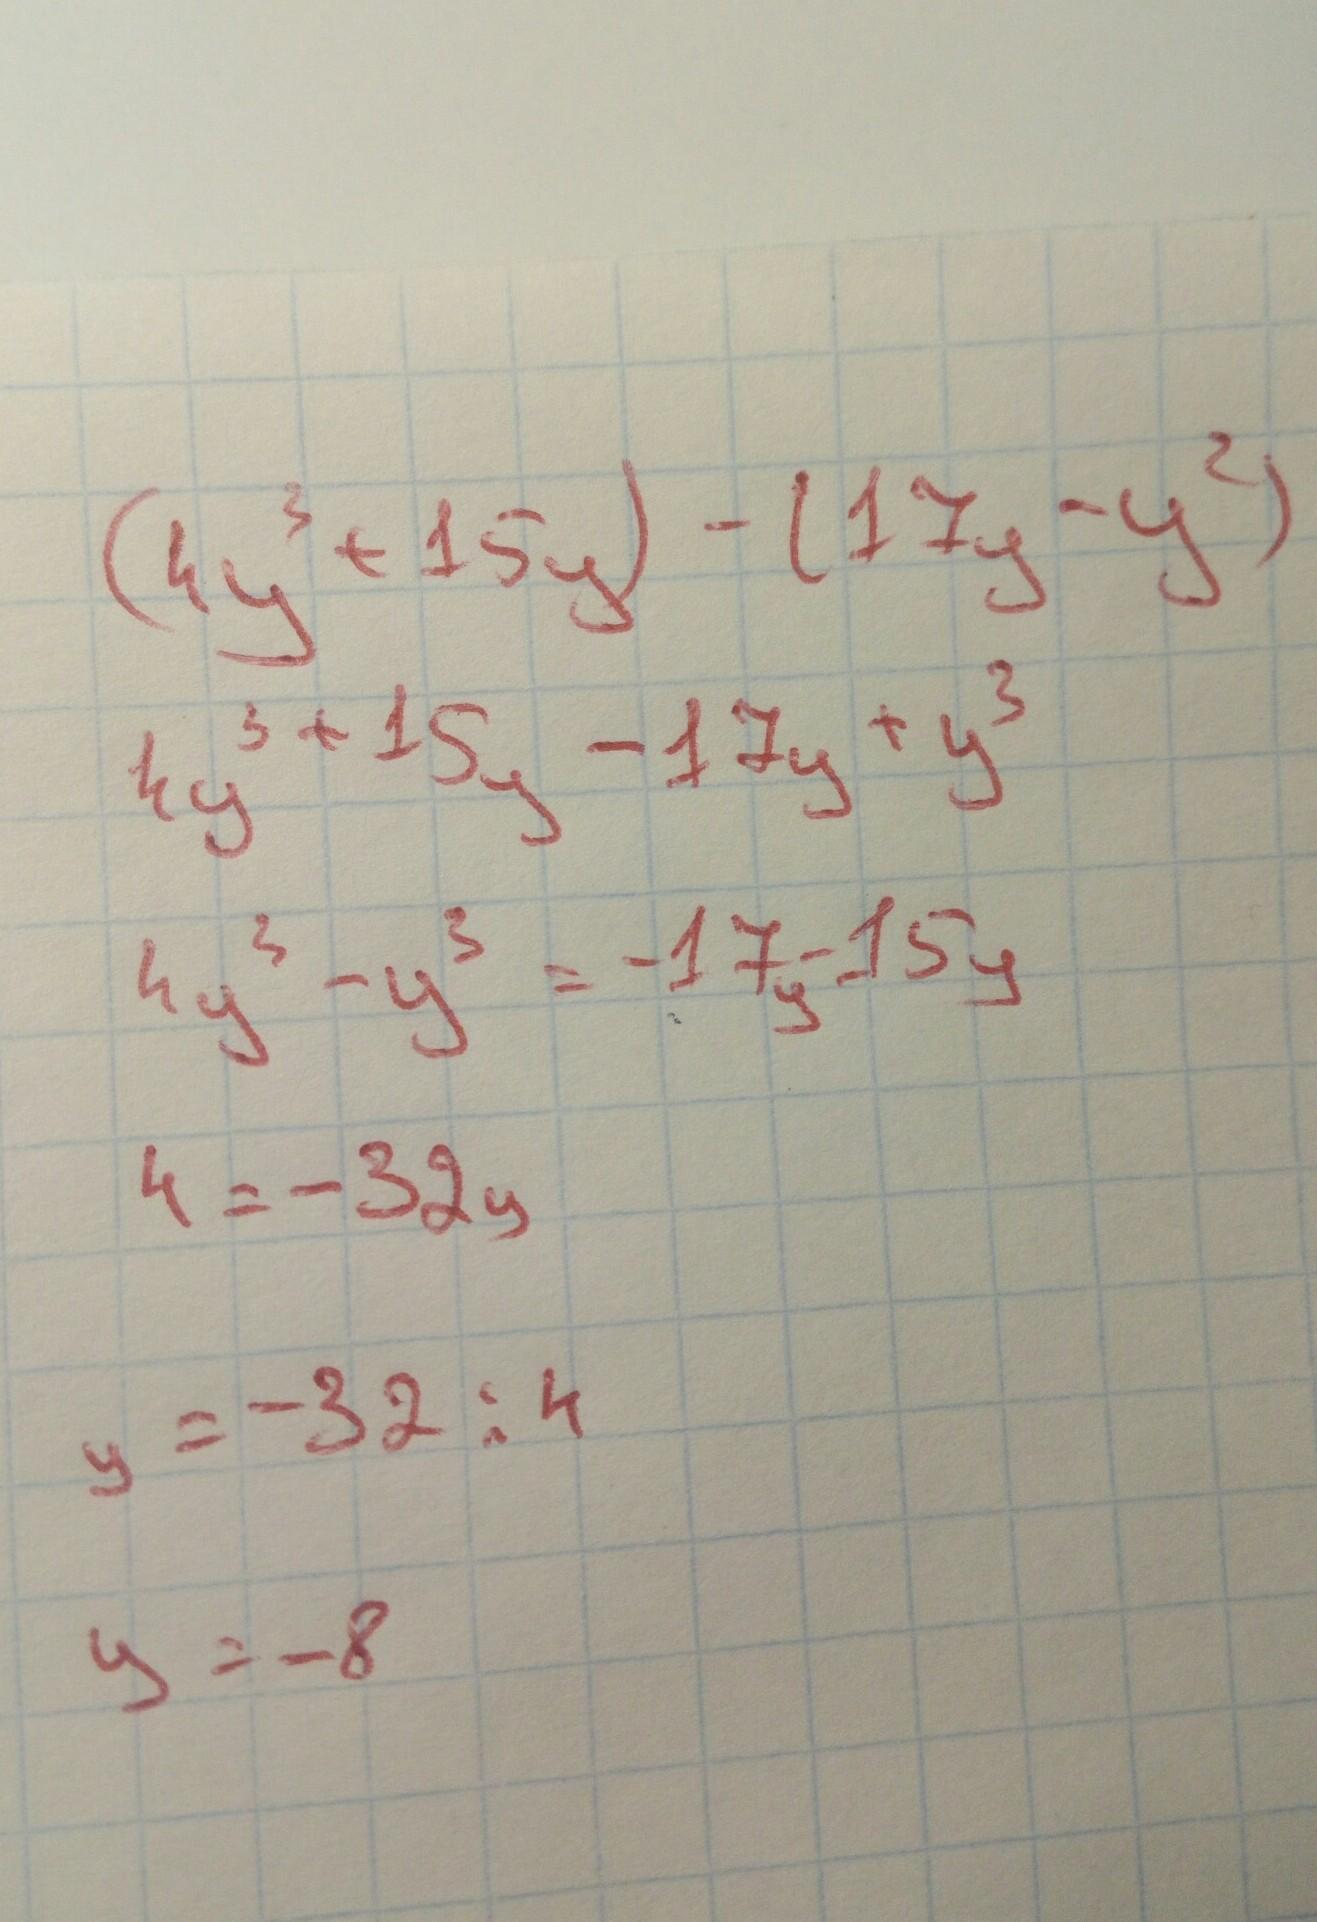 (4y³+15y)-(17y-y²)
4y³+15y-17y+y³
4y³-y³=-17y-15y
4=-32y
y=-32:4
y=-8